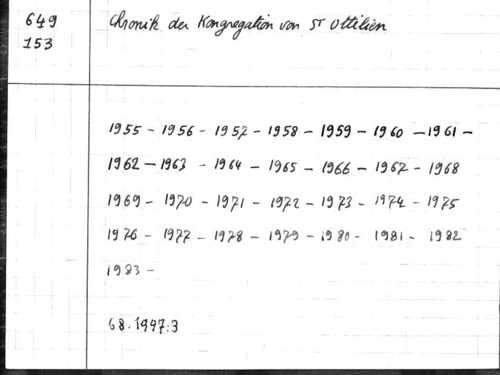 649
153
Chronik der Kongregation von St Ottilien
1955 - 1956 - 1957 - 1958 - 1959 - 1960 - 1961 -
1962 - 1963 - 1964 - 1965 - 1966 - 1967 - 1968
1969 - 1970 - 1971 - 1972 - 1973 - 1974 - 1975
1976 - 1977 - 1978 - 1979 - 1980 - 1981 - 1982
1983 -
68.1997:3